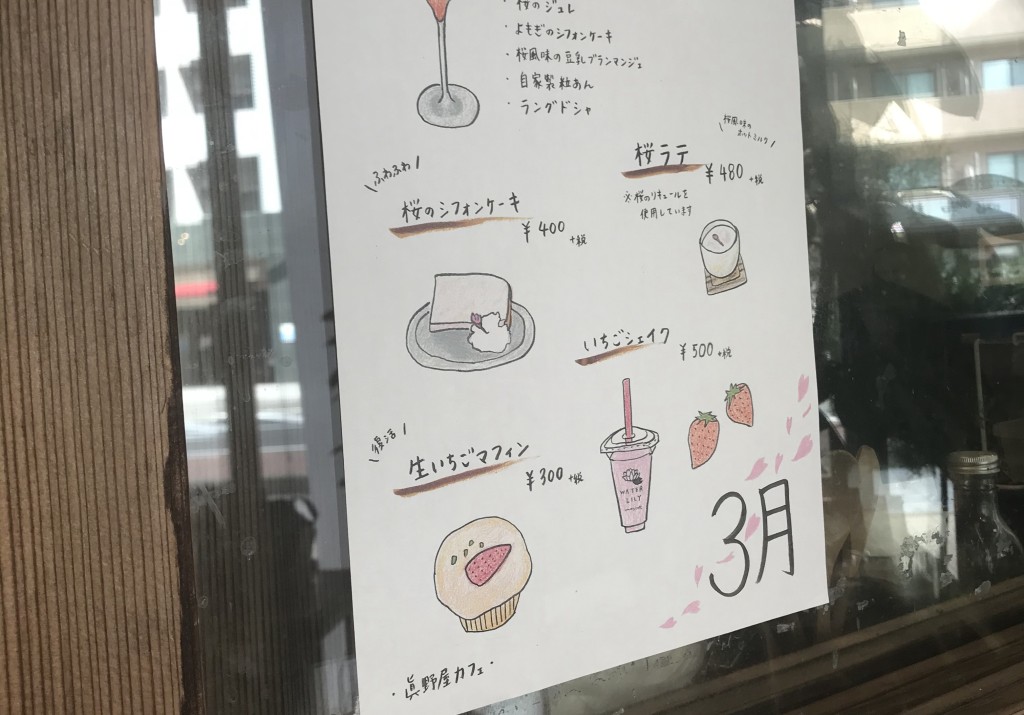 ・桜のジュレ
・よもぎのシフォンケーキ
・桜風味の豆乳ブランマンジェ
・自家製粒あん
・ラングドシャ
ふわふわ
桜のシフォンケーキ
¥400 +税
桜風味の
ホットミルク
桜ラテ
¥480 +税
※桜のリキュールを
使用しています
いちごシェイク
¥500 +税
WATER
LILY
復活
生いちごマフィン
¥300 +税
3月
・眞野屋カフェ・